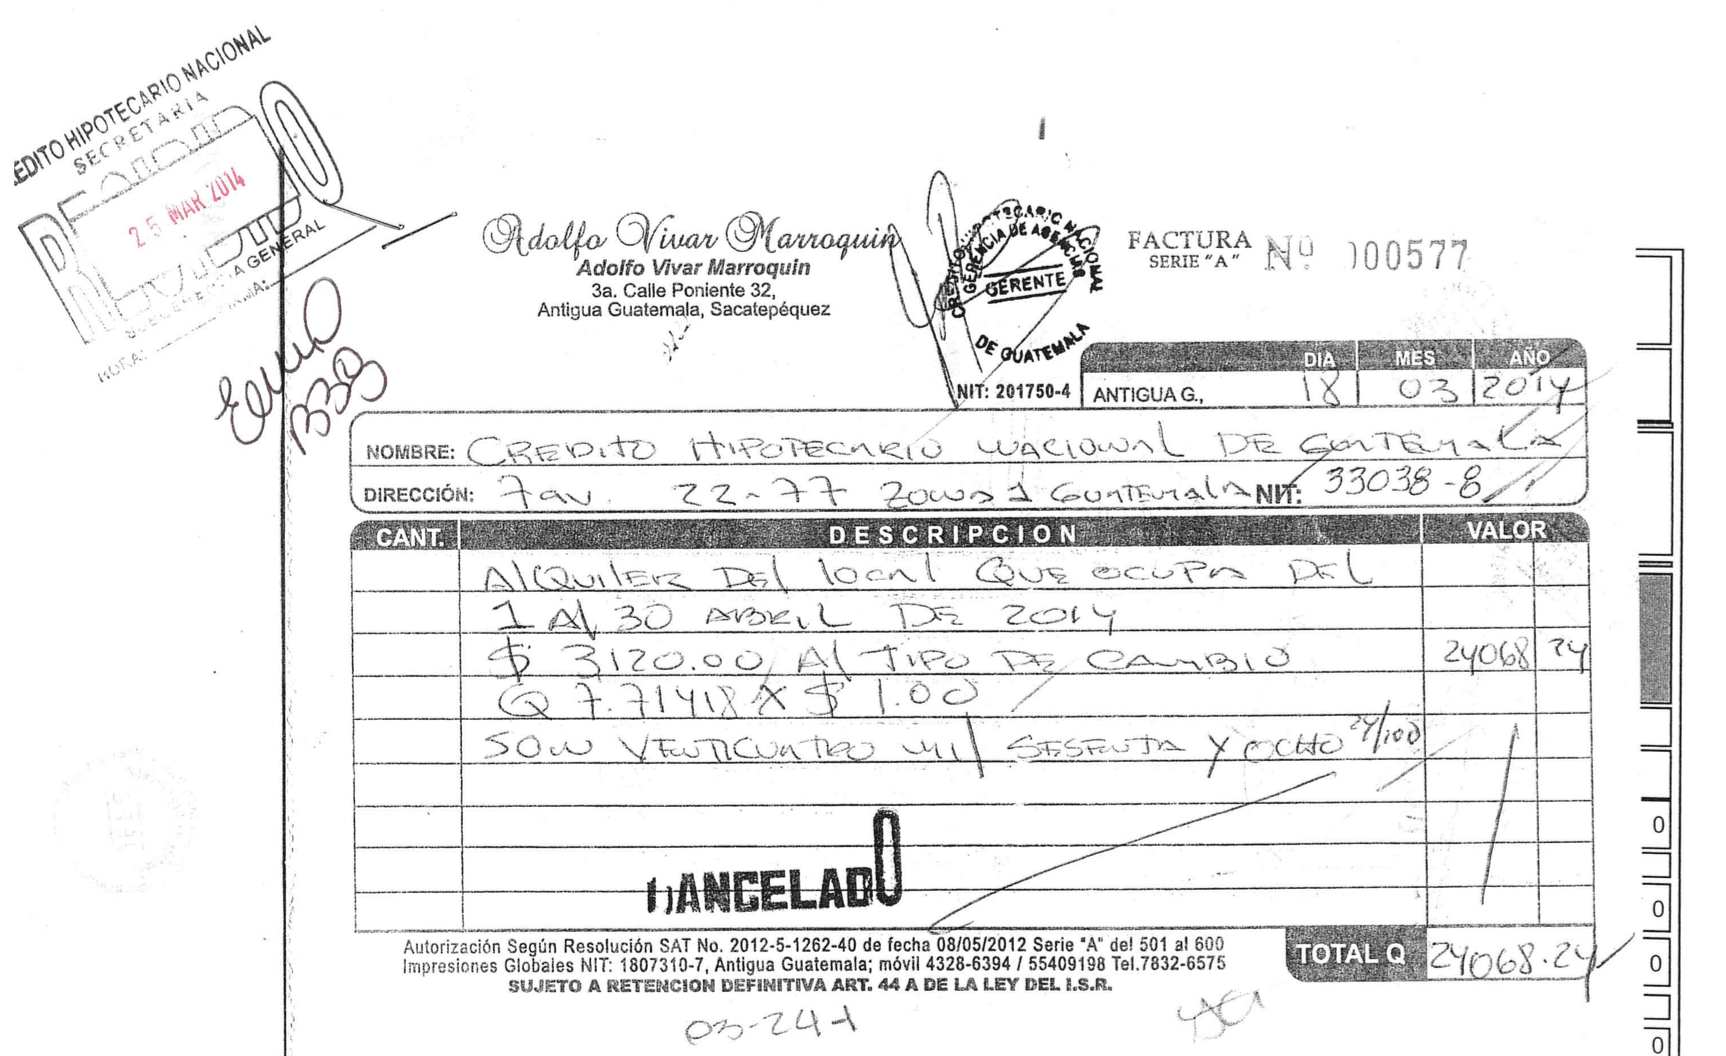 CREDITO HIPOTECARIO NACIONAL
SECRETARIA
25 MAR 2014
GENERAL
HORA:
Adolfo Vivar Marroquin
Adolfo Vivar Marroquin
3a. Calle Poniente 32,
Antigua Guatemala, Sacatepéquez
GERENCIA DE AGENCIAS
GERENTE
DE GUATEMALA
NIT: 201750-4
FACTURA
SERIE "A"
Nº 000577
DIA MES AÑO
ANTIGUA G., 18 03 2014
NOMBRE: CREDITO HIPOTECARIO NACIONAL DE GUATEMALA
DIRECCIÓN: 7 av. 22-77 ZONA 1 GUATEMALA NIT: 33038-8
CANT. DESCRIPCION VALOR
AlQUILER DEl locAl QUE OCUPA DEL
1 Al 30 ABRIL DE 2014
$ 3120.00 Al TIPO DE CAMBIO 24068 24
Q 7.71418 X $ 1.00
SON VENTICUATRO MIl SESENTA Y OCHO 24/100
CANCELADO
Autorización Según Resolución SAT No. 2012-5-1262-40 de fecha 08/05/2012 Serie "A" del 501 al 600
Impresiones Globales NIT: 1807310-7, Antigua Guatemala; móvil 4328-6394 / 55409198 Tel.7832-6575
SUJETO A RETENCION DEFINITIVA ART. 44 A DE LA LEY DEL I.S.R.
TOTAL Q 24068.24
03-24-1
0
0
0
0